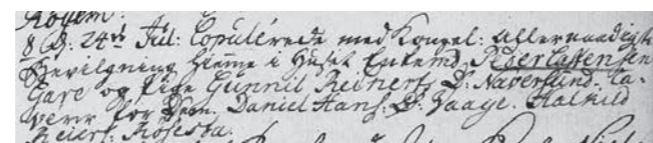 Royem.
8 D: 24de Jul: Copulerede med Kongel: allernaadigste
Bevilgning hieme i Huset Enkemd. Peder Lassensen
Gare og Pige Gunnil Reiners D: Naverlund. Ca-
verer for dem. Daniel Hans: S: Haage. Halkild
Reiers: Rosesta.